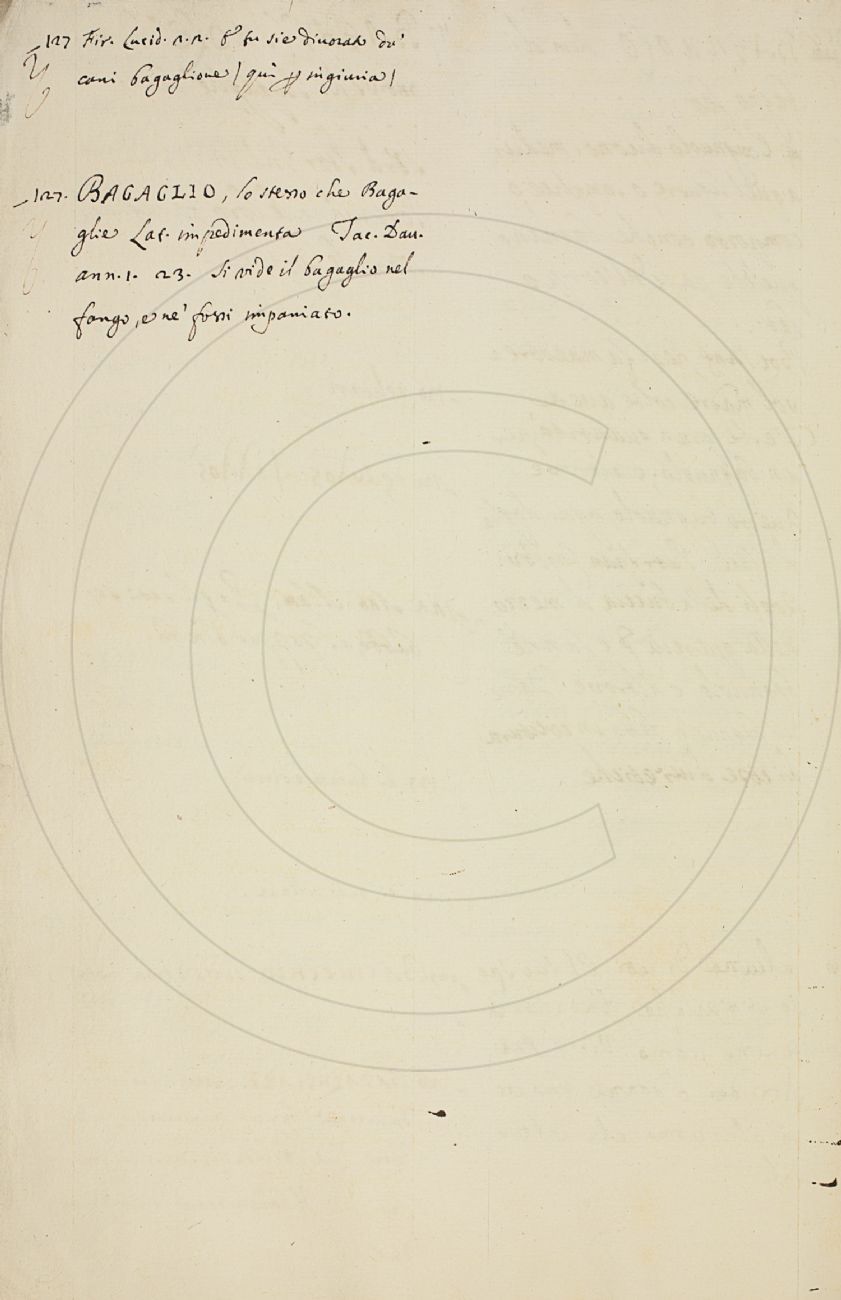 127 Fir. Lucid. 2.2. E tu sie divorato da'
cani bagaglione / quì per ingiuria /
127. BAGAGLIO, lo stesso che Baga-
glie Lat. impedimenta Tac. Dav.
ann. 1. 23. Si vide il bagaglio nel
fango, e ne' fossi impaniato.